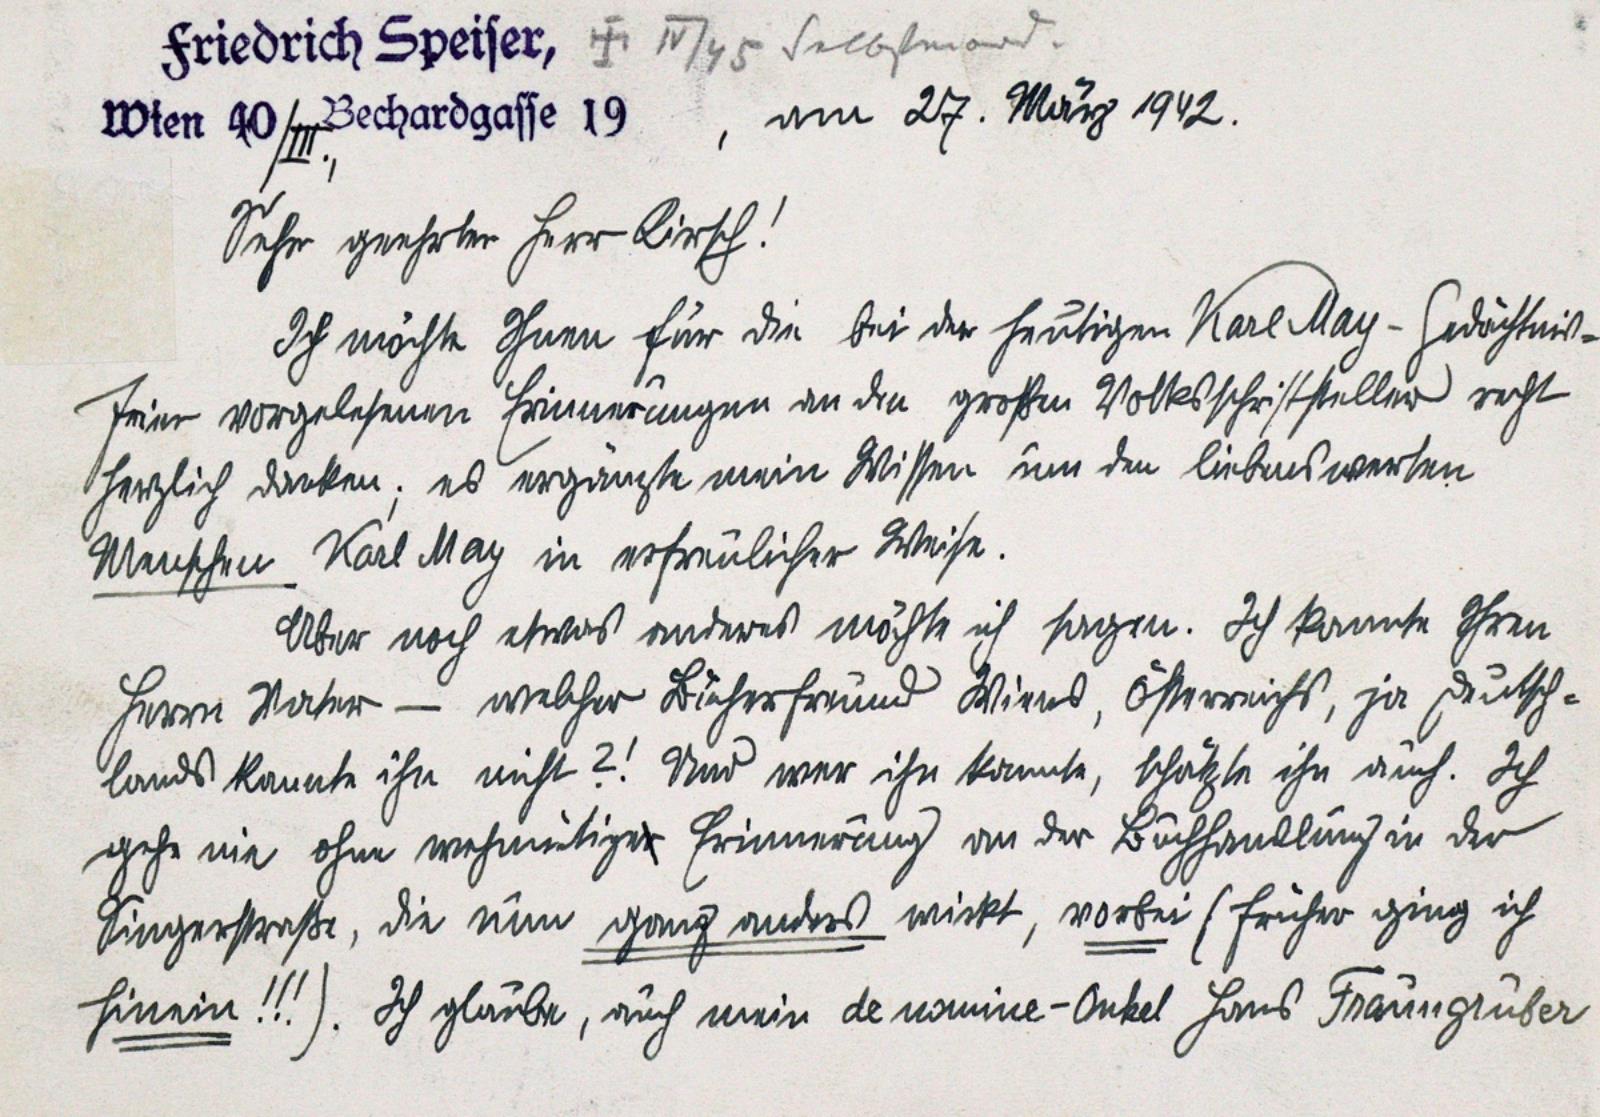 Friedrich Speiser, † IV/45 Selbstmord.
Wien 40/III., Bechardgasse 19, am 27. März 1942.
Sehr geehrter Herr Kirsch!
Ich möchte Ihnen für die bei der heutigen Karl May-Gedächtnis-
feier vorgelesenen Erinnerungen an den großen Volksschriftsteller recht
herzlich danken; es ergänzte mein Wissen um den liebenswerten
Menschen Karl May in erfreulicher Weise.
Aber noch etwas anderes möchte ich sagen. Ich kannte Ihren
Herrn Vater — welcher Bücherfreund Wiens, Österreichs, ja Deutsch-
lands kannte ihn nicht?! Und wer ihn kannte, schätzte ihn auch. Ich
gehe nie ohne wehmütige Erinnerung an der Buchhandlung in der
Singerstraße, die nun ganz anders wirkt, vorbei (früher ging ich
hinein!!!). Ich glaube, auch mein de nomine-Onkel Hans Fraungruber